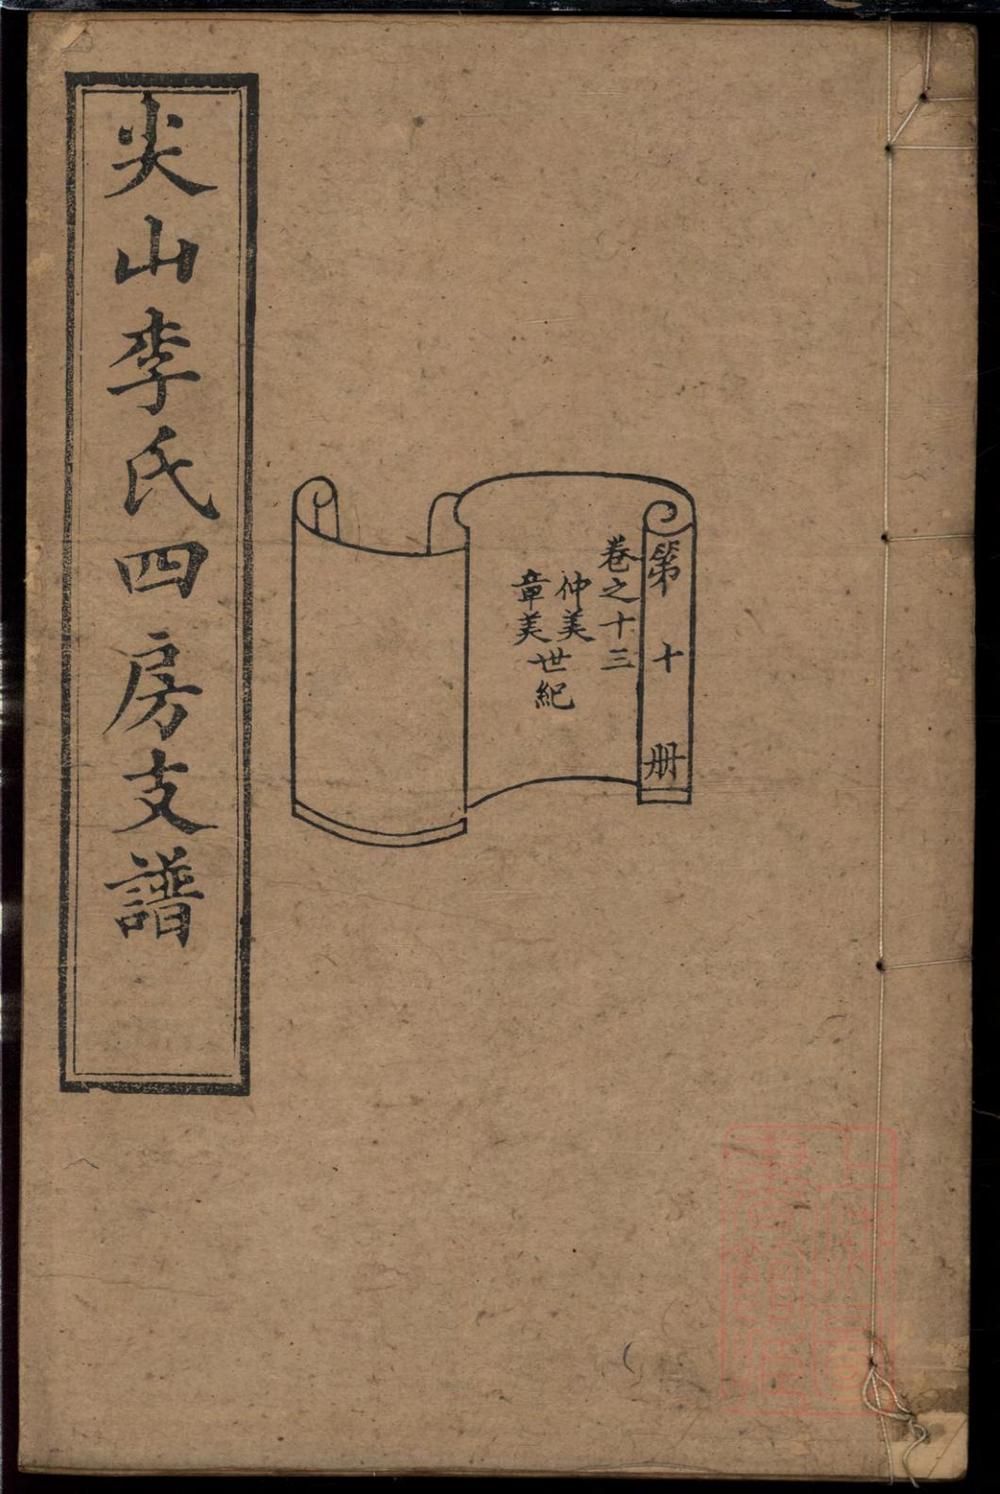 尖山李氏四房支譜
第十册
卷之十三
仲美
章美
世紀